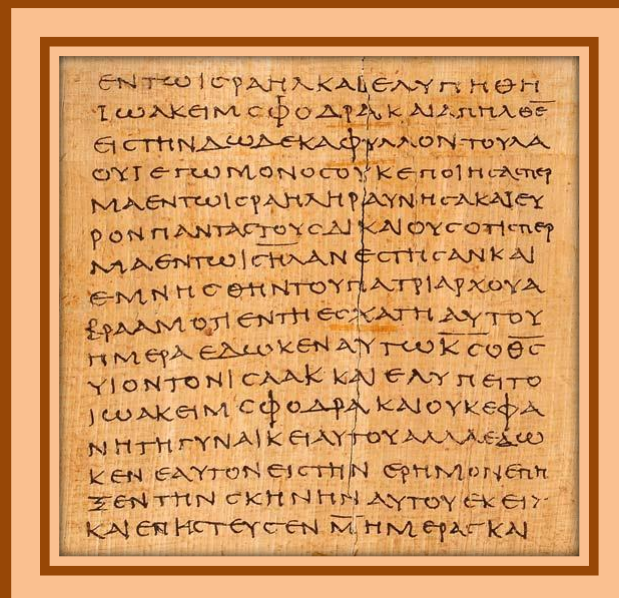 ΕΝΤΩΙCΡΑΗΛΚΑΙΕΛΥΠΗΘΗ
ΙΩΑΚΕΙΜCΦΟΔΡΑΚΑΙΑΠΗΛΘΕ
ΕΙCΤΗΝΔΩΔΕΚΑΦΥΛΛΟΝΤΟΥΛΑ
ΟΥΙΕΓΩΜΟΝΟCΟΥΚΕΠΟΙΗCΑCΠΕΡ
ΜΑΕΝΤΩΙCΡΑΗΛΗΡΑΥΝΗCΑΚΑΙΕΥ
ΡΟΝΠΑΝΤΑCΤΟΥCΔΙΚΑΙΟΥCΟΤΙCΠΕΡ
ΜΑΕΝΤΩΙCΗΛΑΝΕCΤΗCΑΝΚΑΙ
ΕΜΝΗCΘΗΝΤΟΥΠΑΤΡΙΑΡΧΟΥΑ
ΒΡΑΑΜΟΤΙΕΝΤΗΕCΧΑΤΗΑΥΤΟΥ
ΗΜΕΡΑΕΔΩΚΕΝΑΥΤΩΚCΟΘC
ΥΙΟΝΤΟΝΙCΑΑΚΚΑΙΕΛΥΠΕΙΤΟ
ΙΩΑΚΕΙΜCΦΟΔΡΑΚΑΙΟΥΚΕΦΑ
ΝΗΤΗΓΥΝΑΙΚΕΙΑΥΤΟΥΑΛΛΑΕΔΩ
ΚΕΝΕΑΥΤΟΝΕΙCΤΗΝΕΡΗΜΟΝΕΠΗ
ΞΕΝΤΗΝCΚΗΝΗΝΑΥΤΟΥΕΚΕΙ
ΚΑΙΕΝΗCΤΕΥCΕΝΜΗΜΕΡΑCΚΑΙ